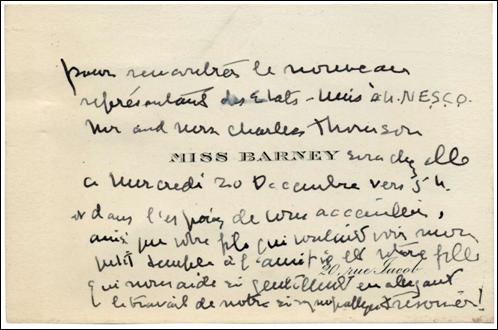 pour rencontrer le nouveau
représentant des Etats-Unis à U.N.E.S.C.O.
Mr and Mrs Charles Thomson
MISS BARNEY sera chez elle
ce Mercredi 20 Decembre vers 5 h.
et dans l'espoir de vous accueillir,
ainsi que votre fils qui voulait voir mon
petit temple à l'amitié et votre fille
20, rue Jacob
qui nous aide si gentiment en
le travail de notre si sympathique trésorier!